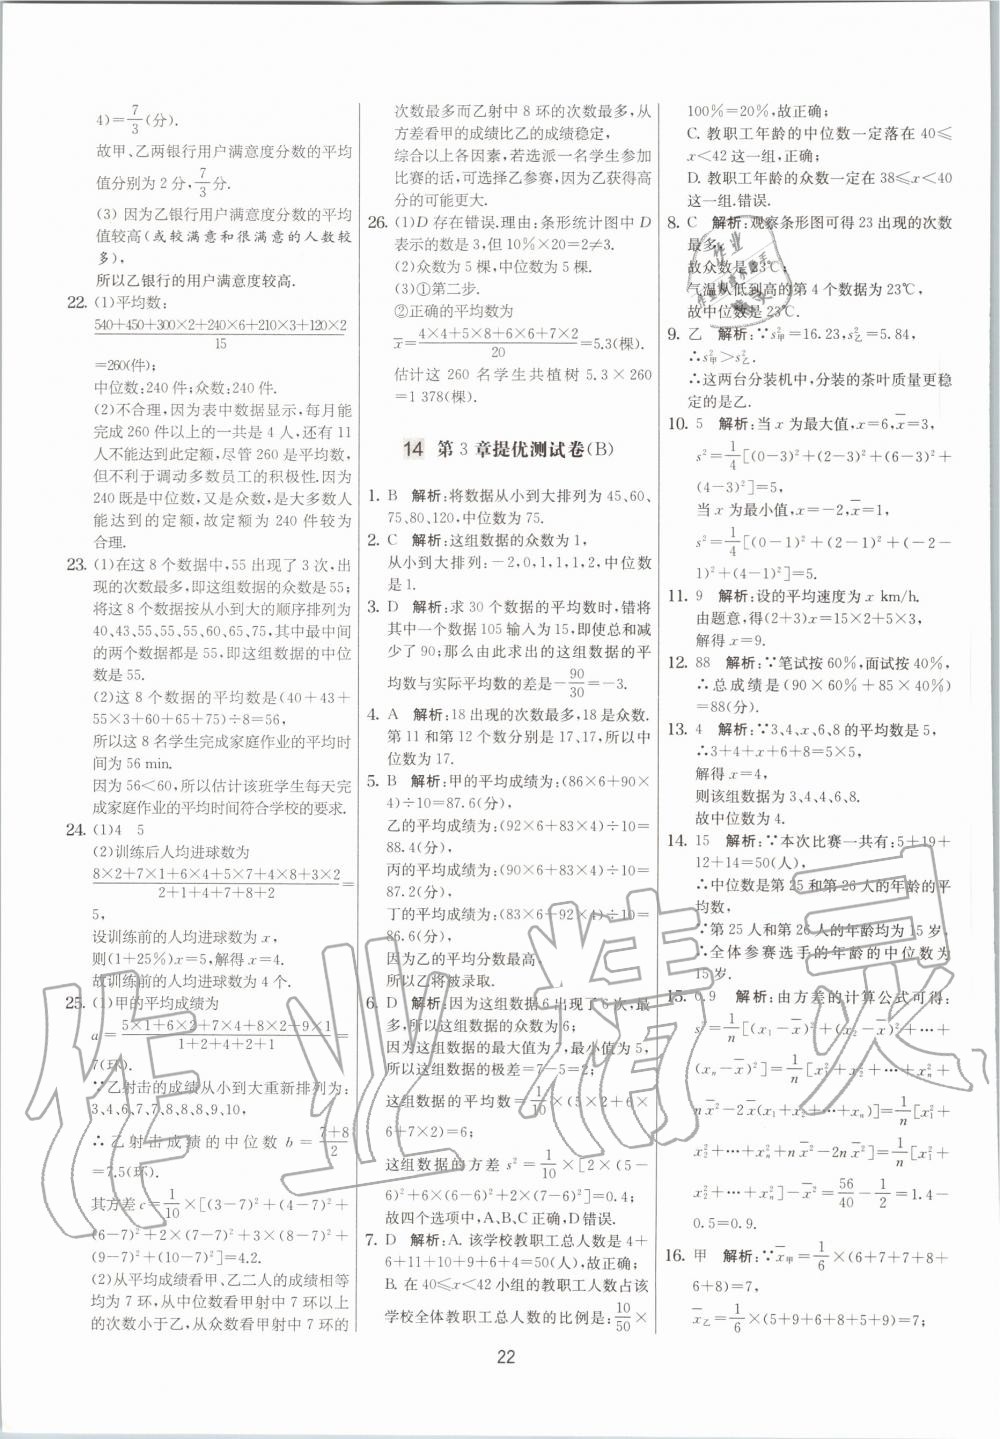 4)=7/3(分).
故甲、乙两银行用户满意度分数的平均
值分别为 2 分,7/3分.
(3) 因为乙银行用户满意度分数的平均
值较高(或较满意和很满意的人数较
多),
所以乙银行的用户满意度较高.
22. (1)平均数:
(540+450+300×2+240×6+210×3+120×2)/15
=260(件);
中位数:240 件;众数:240 件.
(2)不合理,因为表中数据显示,每月能
完成 260 件以上的一共是 4 人,还有 11
人不能达到此定额,尽管 260 是平均数,
但不利于调动多数员工的积极性.因为
240 既是中位数,又是众数,是大多数人
能达到的定额,故定额为 240 件较为
合理.
23. (1)在这 8 个数据中,55 出现了 3 次,出
现的次数最多,即这组数据的众数是 55;
将这 8 个数据按从小到大的顺序排列为
40,43,55,55,55,60,65,75,其中最中间
的两个数据都是 55,即这组数据的中位
数是 55.
(2)这 8 个数据的平均数是(40+43+
55×3+60+65+75)÷8=56,
所以这 8 名学生完成家庭作业的平均时
间为 56 min.
因为 56<60,所以估计该班学生每天完
成家庭作业的平均时间符合学校的要求.
24. (1)4 5
(2)训练后人均进球数为
(8×2+7×1+6×4+5×7+4×8+3×2)/(2+1+4+7+8+2)=
5,
设训练前的人均进球数为 x,
则(1+25%)x=5,解得 x=4.
故训练前的人均进球数为 4 个.
25. (1)甲的平均成绩为
a=(5×1+6×2+7×4+8×2+9×1)/(1+2+4+2+1)=
7(环).
∵乙射击的成绩从小到大重新排列为:
3,4,6,7,7,8,8,8,9,10,
∴乙射击成绩的中位数 b=(7+8)/2
=7.5(环).
其方差 c=1/10×[(3−7)²+(4−7)²+
(6−7)²+2×(7−7)²+3×(8−7)²+
(9−7)²+(10−7)²]=4.2.
(2)从平均成绩看甲、乙二人的成绩相等
均为 7 环,从中位数看甲射中 7 环以上
的次数小于乙,从众数看甲射中 7 环的
次数最多而乙射中 8 环的次数最多,从
方差看甲的成绩比乙的成绩稳定,
综合以上各因素,若选派一名学生参加
比赛的话,可选择乙参赛,因为乙获得高
分的可能更大.
26. (1)D 存在错误.理由:条形统计图中 D
表示的数是 3,但 10%×20=2≠3.
(2)众数为 5 棵,中位数为 5 棵.
(3)①第二步.
②正确的平均数为
x̄=(4×4+5×8+6×6+7×2)/20=5.3(棵).
估计这 260 名学生共植树 5.3×260
=1 378(棵).
14 第 3 章提优测试卷(B)
1. B 解析:将数据从小到大排列为 45、60、
75、80、120,中位数为 75.
2. C 解析:这组数据的众数为 1,
从小到大排列:−2,0,1,1,1,2,中位数
是 1.
3. D 解析:求 30 个数据的平均数时,错将
其中一个数据 105 输入为 15,即使总和减
少了 90;那么由此求出的这组数据的平
均数与实际平均数的差是−90/30=−3.
4. A 解析:18 出现的次数最多,18 是众数.
第 11 和第 12 个数分别是 17、17,所以中
位数为 17.
5. B 解析:甲的平均成绩为:(86×6+90×
4)÷10=87.6(分),
乙的平均成绩为:(92×6+83×4)÷10=
88.4(分),
丙的平均成绩为:(90×6+83×4)÷10=
87.2(分),
丁的平均成绩为:(83×6+92×4)÷10=
86.6(分),
因为乙的平均分数最高,
所以乙将被录取.
6. D 解析:因为这组数据 6 出现了 6 次,最
多,所以这组数据的众数为 6;
因为这组数据的最大值为 7,最小值为 5,
所以这组数据的极差=7−5=2;
这组数据的平均数=1/10×(5×2+6×
6+7×2)=6;
这组数据的方差 s²=1/10×[2×(5−
6)²+6×(6−6)²+2×(7−6)²]=0.4;
故四个选项中,A、B、C 正确,D 错误.
7. D 解析:A. 该学校教职工总人数是 4+
6+11+10+9+6+4=50(人),故正确;
B. 在 40≤x<42 小组的教职工人数占该
学校全体教职工总人数的比例是:10/50×
100%=20%,故正确;
C. 教职工年龄的中位数一定落在 40≤
x<42 这一组,正确;
D. 教职工年龄的众数一定在 38≤x<40
这一组.错误.
8. C 解析:观察条形图可得 23 出现的次数
最多,
故众数是 23℃;
气温从低到高的第 4 个数据为 23℃,
故中位数是 23℃.
9. 乙 解析:∵s²甲=16.23,s²乙=5.84,
∴s²甲>s²乙.
∴这两台分装机中,分装的茶叶质量更稳
定的是乙.
10. 5 解析:当 x 为最大值,x=6,x̄=3,
s²=1/4[(0−3)²+(2−3)²+(6−3)²+
(4−3)²]=5,
当 x 为最小值,x=−2,x̄=1,
s²=1/4[(0−1)²+(2−1)²+(−2−
1)²+(4−1)²]=5.
11. 9 解析:设的平均速度为 x km/h.
由题意,得(2+3)x=15×2+5×3,
解得 x=9.
12. 88 解析:∵笔试按 60%,面试按 40%,
∴总成绩是(90×60%+85×40%)
=88(分).
13. 4 解析:∵3、4、x、6、8 的平均数是 5,
∴3+4+x+6+8=5×5,
解得 x=4,
则该组数据为 3、4、4、6、8.
故中位数为 4.
14. 15 解析:∵本次比赛一共有:5+19+
12+14=50(人),
∴中位数是第 25 和第 26 人的年龄的平
均数,
∵第 25 人和第 26 人的年龄均为 15 岁,
∴全体参赛选手的年龄的中位数为
15 岁.
15. 0.9 解析:由方差的计算公式可得:
s²=1/n[(x₁−x̄)²+(x₂−x̄)²+⋯+
(xₙ−x̄)²]=1/n[x₁²+x₂²+⋯+xₙ²+
nx̄²−2x̄(x₁+x₂+⋯+xₙ)]=1/n[x₁²+
x₂²+⋯+xₙ²+nx̄²−2nx̄²]=1/n[x₁²+
x₂²+⋯+xₙ²]−x̄²=56/40−1/2=1.4−
0.5=0.9.
16. 甲 解析:∵x̄甲=1/6×(6+7+7+8+
6+8)=7,
x̄乙=1/6×(5+9+6+8+5+9)=7;
22
作业精灵